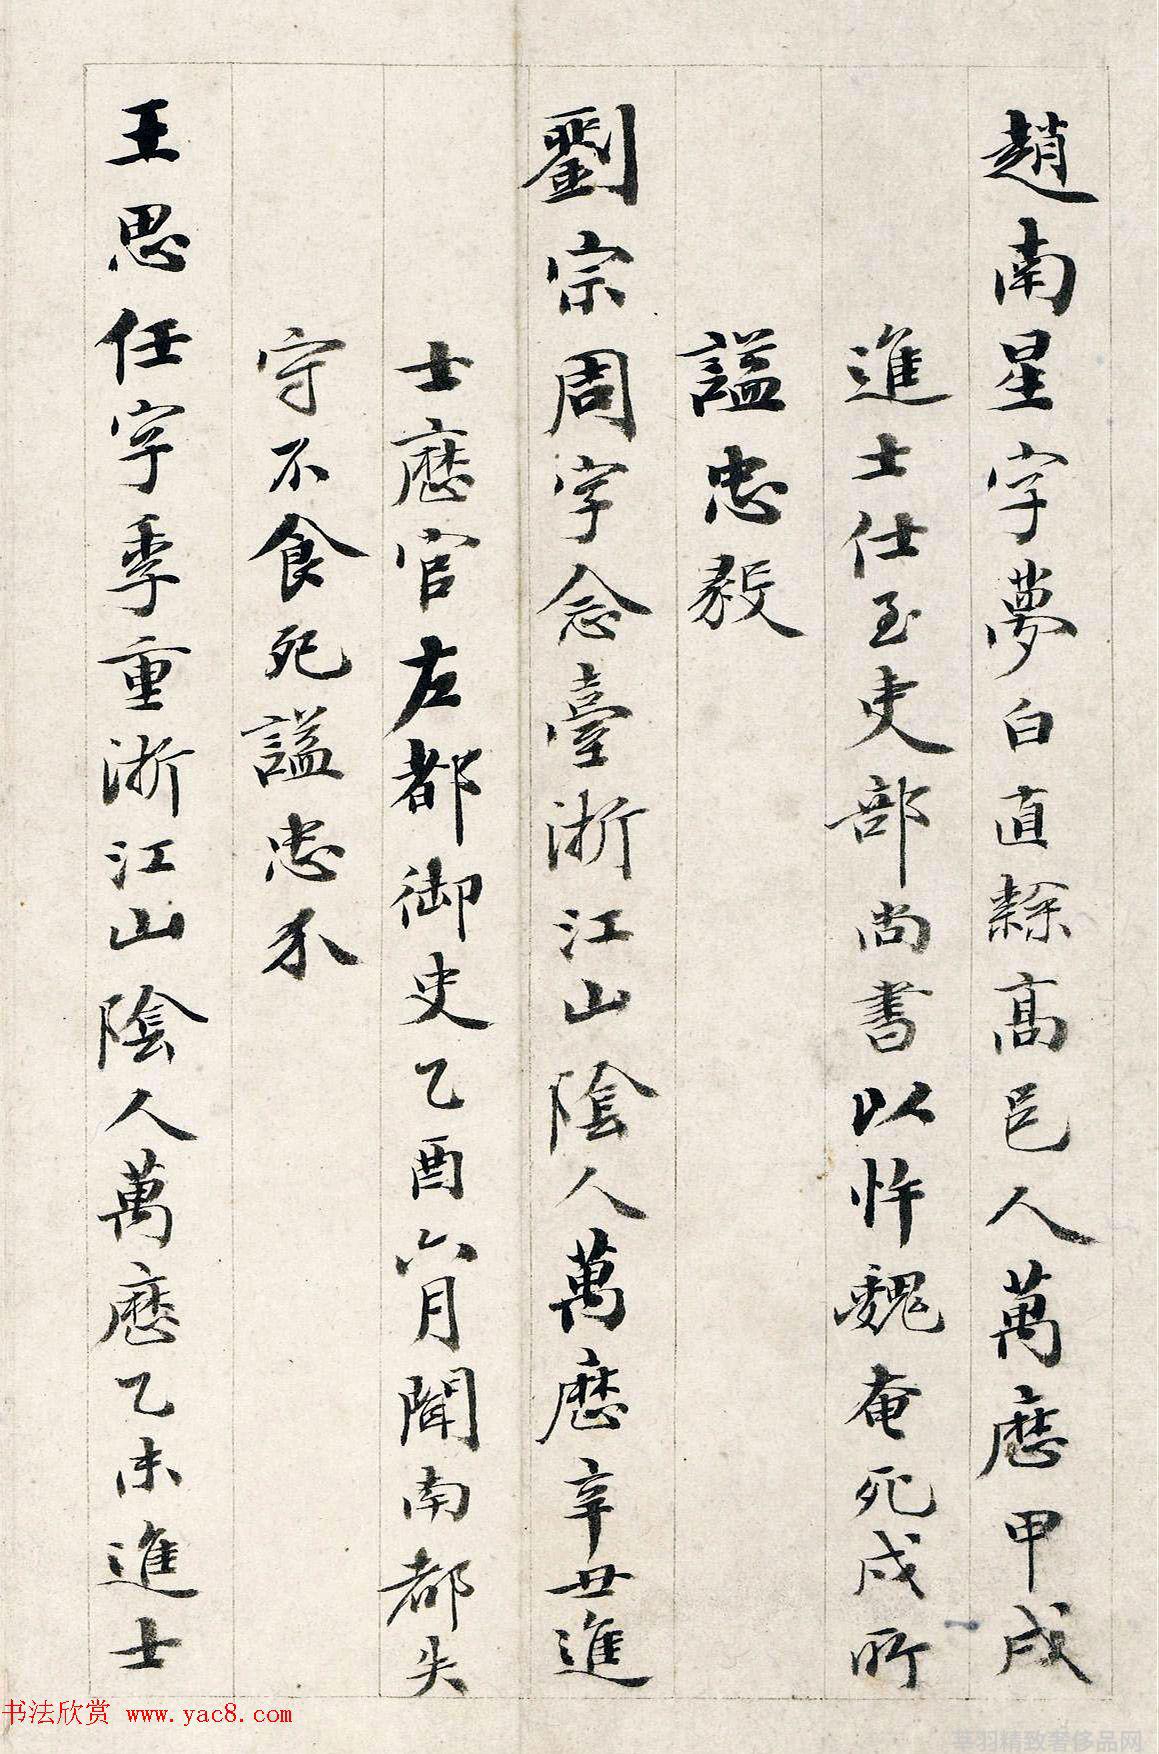 趙南星字夢白直隸高邑人萬曆甲戌
進士仕至吏部尚書以忤魏奄死戍所
謚忠毅
劉宗周字念臺浙江山陰人萬曆辛丑進
士歷官左都御史乙酉六月聞南都失
守不食死謚忠介
王思任字季重浙江山陰人萬曆乙未進士
书法欣赏 www.yac8.com
莘羽精致奢侈品网